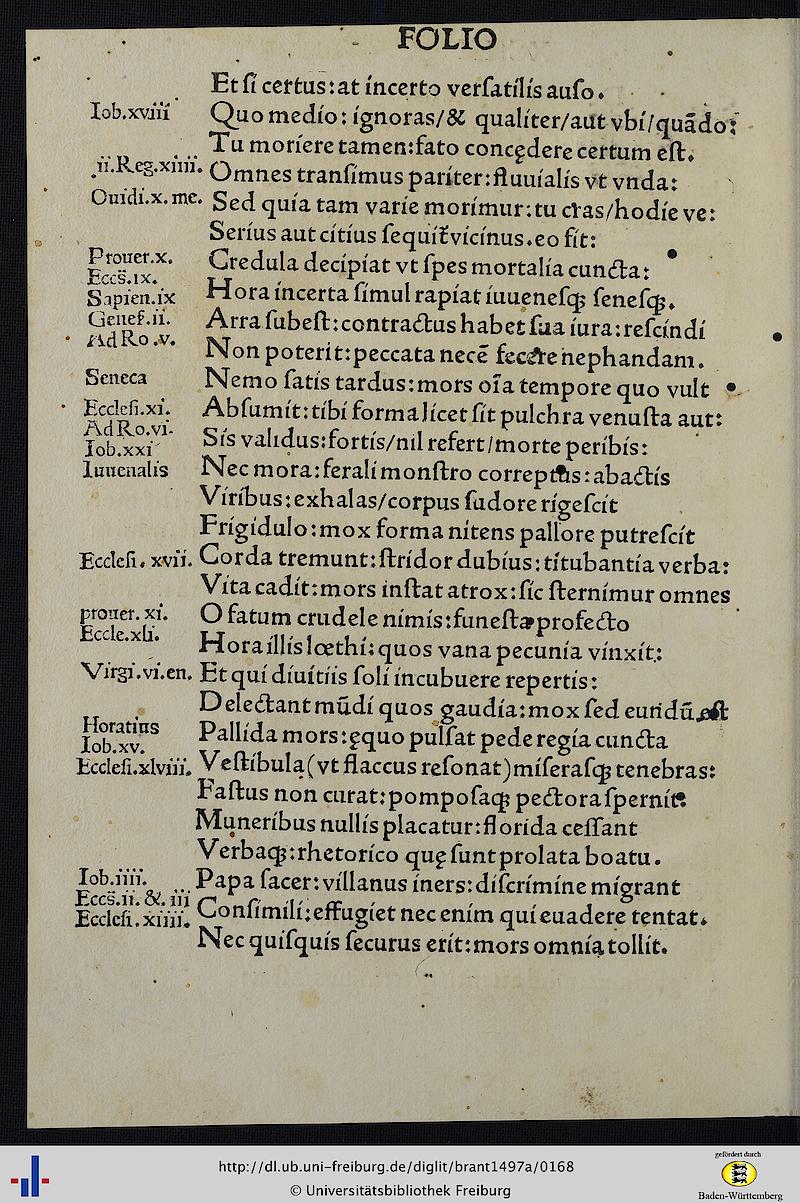 FOLIO
Et ſi certus: at incerto verſatilis auſo.
Iob.xviii Quo medio: ignoras/& qualiter/aut vbi/quãdo:
Tu moriere tamen: fato concędere certum eſt.
.ii.Reg.xiiii. Omnes tranſimus pariter: fluuialis vt vnda:
Ouidi.x.me. Sed quia tam varie morimur: tu cras/hodie ve:
Serius aut citius ſequit vicinus. eo fit:
Prouer.x. Credula decipiat vt ſpes mortalia cuncta:
Eccs̄.ix.
Sapien.ix Hora incerta ſimul rapiat iuueneſqꝫ ſeneſqꝫ.
Geneſ.ii. Arra ſubeſt: contractus habet ſua iura: reſcindi
Ad Ro.v. Non poterit: peccata necē fecere nephandam.
Seneca Nemo ſatis tardus: mors oīa tempore quo vult
Eccleſi.xi. Abſumit: tibi forma licet ſit pulchra venuſta aut:
Ad Ro.vi.
Iob.xxi Sis validus: fortis/nil refert/morte peribis:
Iuuenalis Nec mora: ferali monſtro correptus: abactis
Viribus: exhalas/corpus ſudore rigeſcit
Frigidulo: mox forma nitens pallore putreſcit
Eccleſi. xvii. Corda tremunt: ſtridor dubius: titubantia verba:
Vita cadit: mors inſtat atrox: ſic ſternimur omnes
prouer. xi. O fatum crudele nimis: funeſta profecto
Eccle.xli. Hora illis lœthi: quos vana pecunia vinxit:
Virgi.vi.en. Et qui diuitiis ſoli incubuere repertis:
Delectant mūdi quos gaudia: mox ſed euridū eſt
Horatius Pallida mors: ęquo pulſat pede regia cuncta
Iob.xv.
Eccleſi.xlviii. Veſtibula (vt flaccus reſonat) miſeraſqꝫ tenebras:
Faſtus non curat: pompoſaqꝫ pectora ſpernit:
Muneribus nullis placatur: florida ceſſant
Verbaqꝫ: rhetorico quę ſunt prolata boatu.
Iob.iiii. Papa ſacer: villanus iners: diſcrimine migrant
Eccs̄.ii. &. iii
Eccleſi.xiiii. Conſimili: effugiet nec enim qui euadere tentat.
Nec quiſquis ſecurus erit: mors omnia tollit.
http://dl.ub.uni-freiburg.de/diglit/brant1497a/0168
© Universitätsbibliothek Freiburg
gefördert durch
Baden-Württemberg